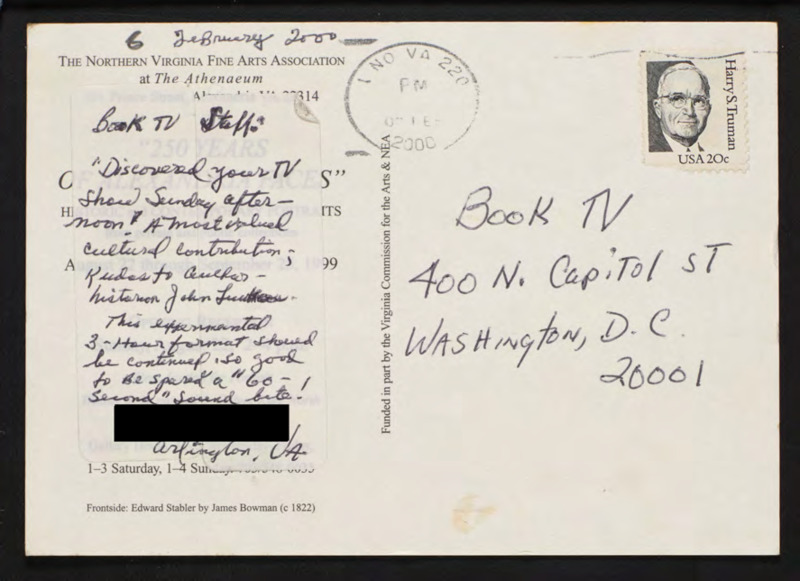 6 February 2000
THE NORTHERN VIRGINIA FINE ARTS ASSOCIATION
at The Athenaeum
22314
Book TV Staff:
"250 YEARS
"Discovered your TV
Show Sunday after-
noon! A most valued
cultural contribution-
Kudos to author-
historian John
This experimental
3-Hour format should
be continued. So good
to be spared a "60-
second" sound bite-
Arlington, VA
1-3 Saturday, 1-4
Frontside: Edward Stabler by James Bowman (c 1822)
Funded in part by the Virginia Commission for the Arts & NEA
NO VA 220
PM
2000
Harry S. Truman
USA 20c
Book TV
400 N. Capitol ST
Washington, D.C.
20001